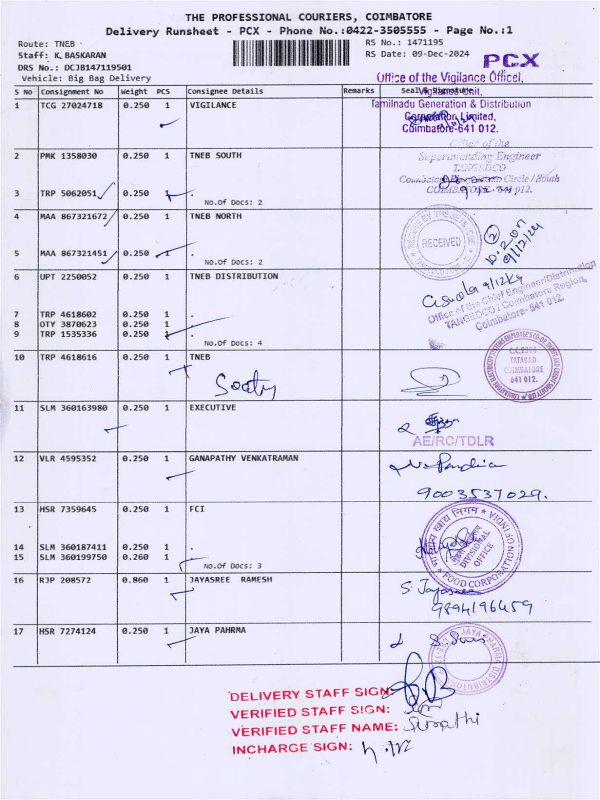 THE PROFESSIONAL COURIERS, COIMBATORE
Delivery Runsheet - PCX - Phone No.:0422-3505555 - Page No.:1
Route: TNEB RS No.: 1471195
Staff: K.BASKARAN RS Date: 09-Dec-2024 PCX
DRS No.: DCJB147119501
Vehicle: Big Bag Delivery
Office of the Vigilance Officer,
S No Consignment No Weight PCS Consignee Details Remarks Seal & Signature
Vigilance Unit,
1 TCG 27024718 0.250 1 VIGILANCE
Tamilnadu Generation & Distribution
Corporation Limited,
Coimbatore-641 012.
Office of the
2 PMK 1358030 0.250 1 TNEB SOUTH
Superintending Engineer
Circle / South
3 TRP 5062051 0.250 1 .
No.Of Docs: 2
4 MAA 867321672 0.250 1 TNEB NORTH
RECEIVED
9/12/24
5 MAA 867321451 0.250 1 .
No.Of Docs: 2
6 UPT 2250052 0.250 1 TNEB DISTRIBUTION
9/12/24
Office of the Chief Engineer/Distribution
TANGEDCO / Coimbatore Region,
Coimbatore- 641 012.
7 TRP 4618602 0.250 1 .
8 OTY 3870623 0.250 1
9 TRP 1535336 0.250 1
No.Of Docs: 4
10 TRP 4618616 0.250 1 TNEB
TATABAD
COIMBATORE
641 012.
11 SLM 360163980 0.250 1 EXECUTIVE
AE/RC/TDLR
12 VLR 4595352 0.250 1 GANAPATHY VENKATRAMAN
9003537029.
13 HSR 7359645 0.250 1 FCI
भारतीय खाद्य निगम
FOOD CORPORATION OF INDIA
DIVISIONAL OFFICE
14 SLM 360187411 0.250 1 .
15 SLM 360199750 0.260 1
No.Of Docs: 3
16 RJP 208572 0.860 1 JAYASREE RAMESH
S. Jayasree
9894196459
17 HSR 7274124 0.250 1 JAYA PAHRMA
DELIVERY STAFF SIGN:
VERIFIED STAFF SIGN:
VERIFIED STAFF NAME: Sumathi
INCHARGE SIGN: